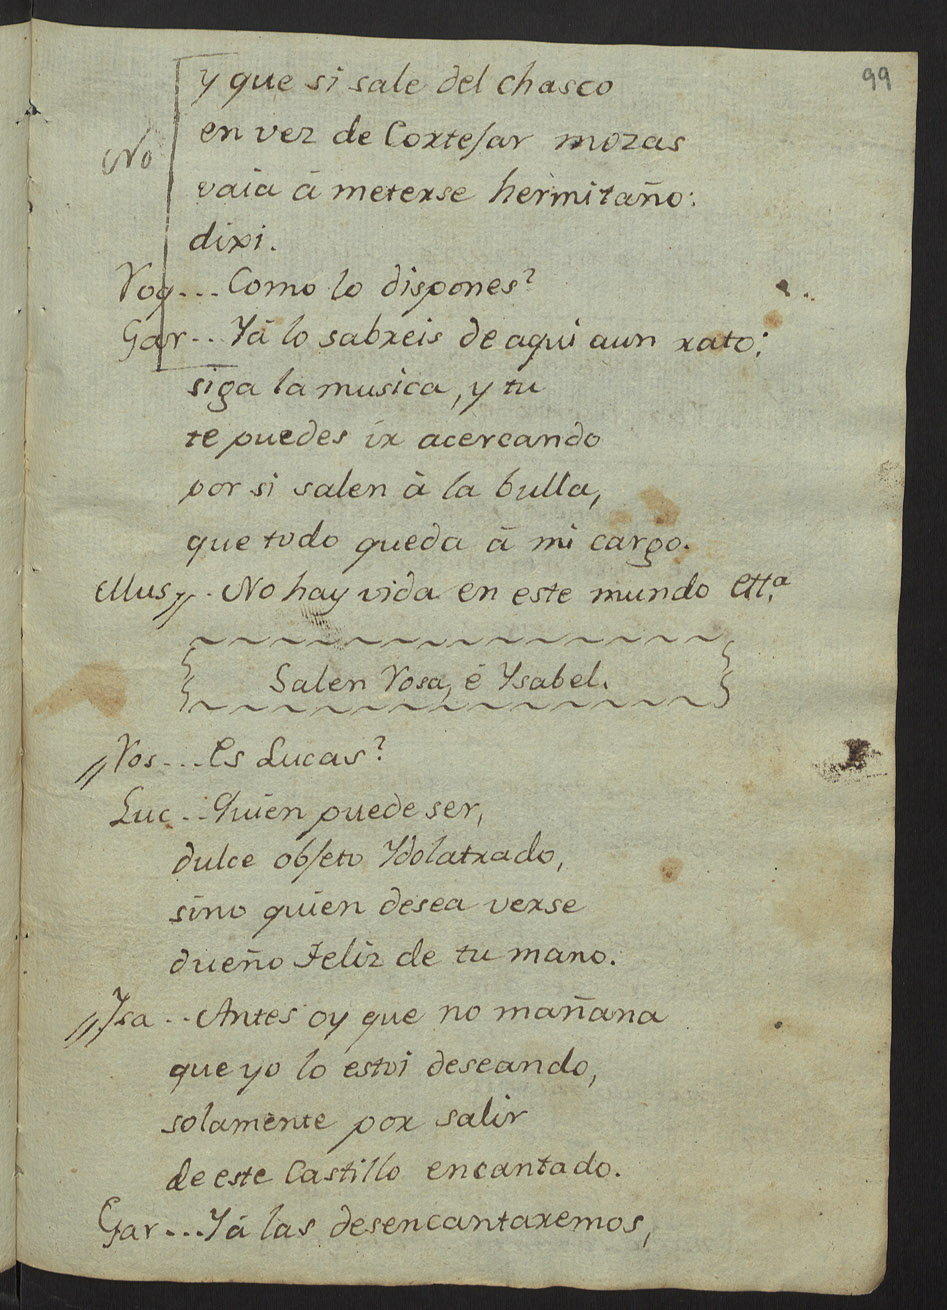 99
y que si sale del chasco
No
en vez de Cortejar mozas
vaia á meterse hermitaño:
dixi.
Roq... Como lo dispones?
Gar... Yá lo sabreis de aqui aun rato;
siga la musica, y tu
te puedes ir acercando
por si salen à la bulla,
que todo queda á mi cargo.
Mus,, . No hay vida en este mundo ettª
Salen Rosa, é Ysabel.
// Ros... Es Lucas?
Luc... Quien puede ser,
dulce objeto Ydolatrado,
sino quien desea verse
dueño Feliz de tu mano.
// Ysa... Antes oy que no mañana
que yo lo estoi deseando,
solamente por salir
de este Castillo encantado.
Gar... Yá las desencantaremos,